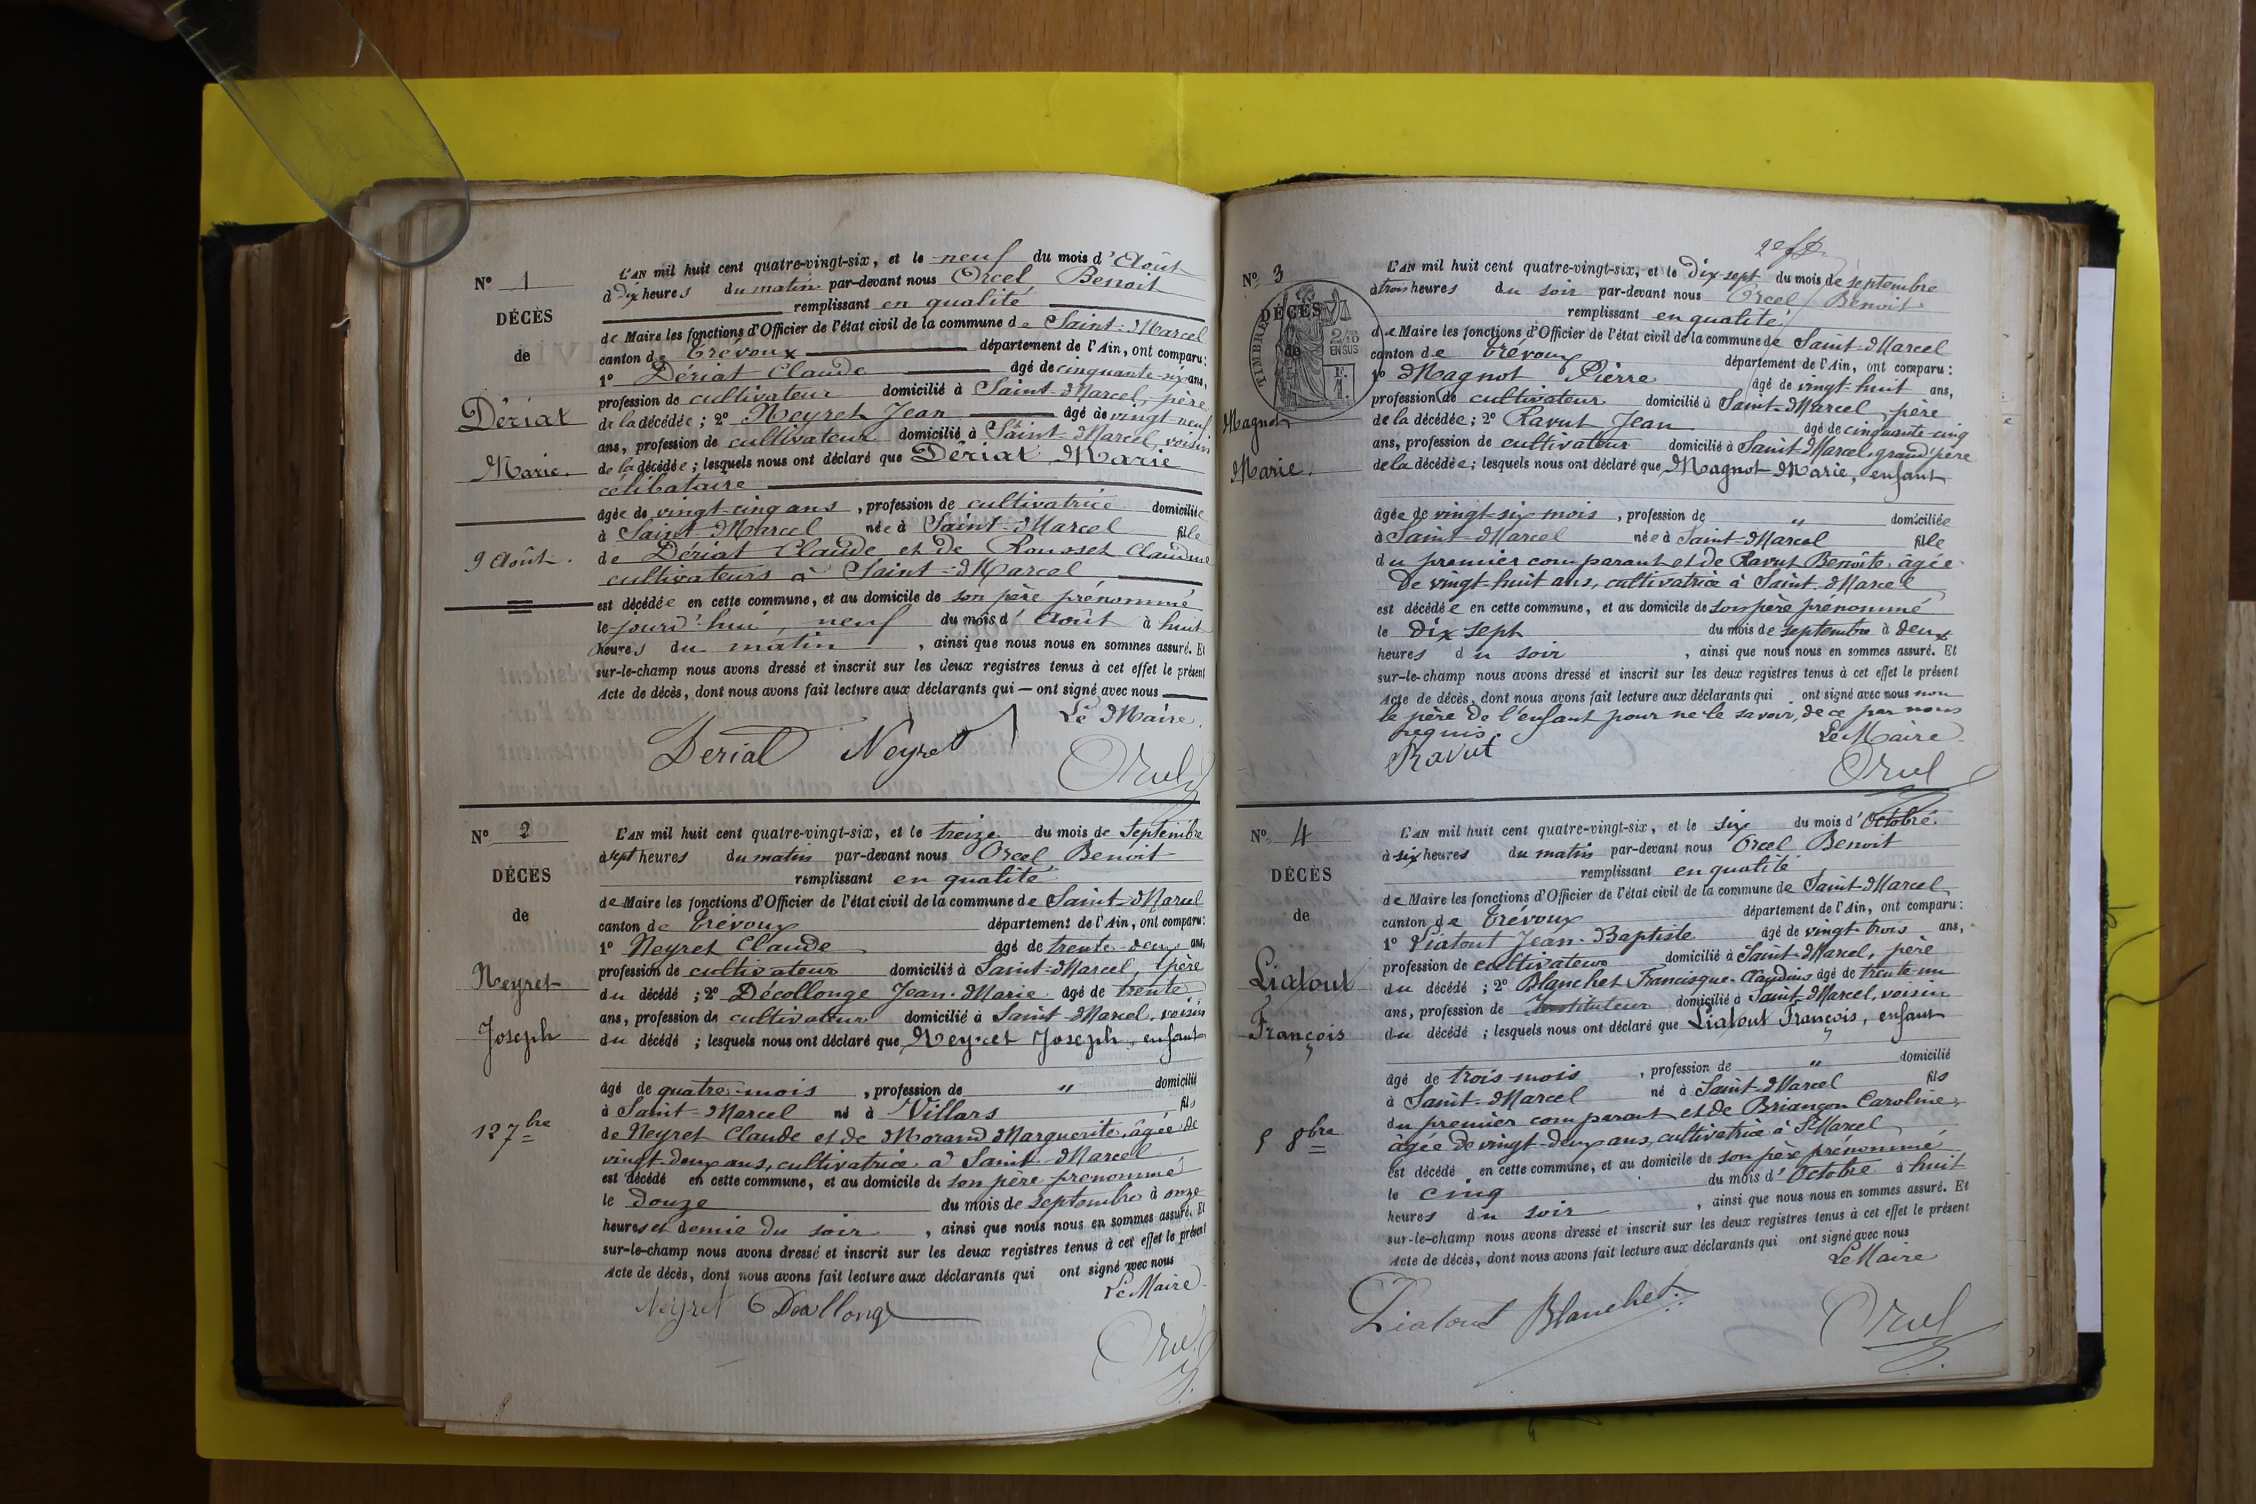 N° 1
DÉCÈS
de
Dériat
Marie.
9 Août.
L'AN mil huit cent quatre-vingt-six, et le neuf du mois d'Août
à dix heures du matin par-devant nous Orcel Benoit
remplissant en qualité
de Maire les fonctions d'Officier de l'état civil de la commune de Saint-Marcel
canton de Trévoux département de l'Ain, ont comparu :
1° Dériat Claude âgé de cinquante-six ans,
profession de cultivateur domicilié à Saint-Marcel, père
de la décédée ; 2° Neyret Jean âgé de vingt-neuf
ans, profession de cultivateur domicilié à Saint-Marcel, voisin
de la décédée ; lesquels nous ont déclaré que Dériat Marie
célibataire
âgée de vingt-cinq ans, profession de cultivatrice domiciliée
à Saint-Marcel née à Saint-Marcel fille
de Dériat Claude et de Rousset Claudine
cultivateurs à Saint-Marcel
est décédée en cette commune, et au domicile de son père prénommé
le jourd'hui, neuf du mois d'Août à huit
heures du matin, ainsi que nous nous en sommes assuré. Et
sur-le-champ nous avons dressé et inscrit sur les deux registres tenus à cet effet le présent
Acte de décès, dont nous avons fait lecture aux déclarants qui — ont signé avec nous
Le Maire.
Deriat Neyret Orcel
N° 2
DÉCÈS
de
Neyret
Joseph
12 7bre
L'AN mil huit cent quatre-vingt-six, et le treize du mois de Septembre
à sept heures du matin par-devant nous Orcel Benoit
remplissant en qualité
de Maire les fonctions d'Officier de l'état civil de la commune de Saint-Marcel
canton de Trévoux département de l'Ain, ont comparu :
1° Neyret Claude âgé de trente-deux ans,
profession de cultivateur domicilié à Saint-Marcel, père
du décédé ; 2° Décollonge Jean-Marie âgé de trente
ans, profession de cultivateur domicilié à Saint-Marcel, voisin
du décédé ; lesquels nous ont déclaré que Neyret Joseph, enfant
âgé de quatre-mois, profession de " domicilié
à Saint-Marcel né à Villars fils
de Neyret Claude et de Morand Marguerite, âgée de
vingt-deux ans, cultivatrice à Saint-Marcel
est décédé en cette commune, et au domicile de son père prénommé
le douze du mois de septembre à onze
heures et demie du soir, ainsi que nous nous en sommes assuré. Et
sur-le-champ nous avons dressé et inscrit sur les deux registres tenus à cet effet le présent
Acte de décès, dont nous avons fait lecture aux déclarants qui ont signé avec nous
Le Maire.
Neyret Decollonge
Orcel
N° 3
DÉCÈS
de
TIMBRE
2/10
EN SUS
Magnot
Marie.
L'AN mil huit cent quatre-vingt-six, et le Dix-sept du mois de septembre
à trois heures du soir par-devant nous Orcel Benoit
remplissant en qualité
de Maire les fonctions d'Officier de l'état civil de la commune de Saint-Marcel
canton de Trévoux département de l'Ain, ont comparu :
1° Magnot Pierre âgé de vingt-huit ans,
profession de cultivateur domicilié à Saint-Marcel, père
de la décédée ; 2° Ravut Jean âgé de cinquante-cinq
ans, profession de cultivateur domicilié à Saint-Marcel, grand père
de la décédée ; lesquels nous ont déclaré que Magnot Marie, enfant
âgée de vingt-six mois, profession de " domiciliée
à Saint-Marcel née à Saint-Marcel fille
du premier comparant et de Ravut Benoîte, âgée
de vingt-huit ans, cultivatrice à Saint-Marcel
est décédée en cette commune, et au domicile de son père prénommé
le Dix sept du mois de septembre à deux
heures du soir, ainsi que nous nous en sommes assuré. Et
sur-le-champ nous avons dressé et inscrit sur les deux registres tenus à cet effet le présent
Acte de décès, dont nous avons fait lecture aux déclarants qui ont signé avec nous non
le père de l'enfant pour ne le savoir, de ce par nous
requis. Le Maire
Ravut Orcel
N° 4
DÉCÈS
de
Liatout
François
5 8bre
L'AN mil huit cent quatre-vingt-six, et le six du mois d'Octobre
à six heures du matin par-devant nous Orcel Benoit
remplissant en qualité
de Maire les fonctions d'Officier de l'état civil de la commune de Saint-Marcel
canton de Trévoux département de l'Ain, ont comparu :
1° Liatout Jean-Baptiste âgé de vingt-trois ans,
profession de cultivateur domicilié à Saint-Marcel, père
du décédé ; 2° Blanchet Francisque-Claudius âgé de trente un
ans, profession de Instituteur domicilié à Saint-Marcel, voisin
du décédé ; lesquels nous ont déclaré que Liatout François, enfant
âgé de trois mois, profession de " domicilié
à Saint-Marcel né à Saint-Marcel fils
du premier comparant et de Briançon Caroline,
âgée de vingt-deux ans, cultivatrice à St Marcel
est décédé en cette commune, et au domicile de son père prénommé
le cinq du mois d'Octobre à huit
heures du soir, ainsi que nous nous en sommes assuré. Et
sur-le-champ nous avons dressé et inscrit sur les deux registres tenus à cet effet le présent
Acte de décès, dont nous avons fait lecture aux déclarants qui ont signé avec nous
Le Maire
Liatout Blanchet Orcel